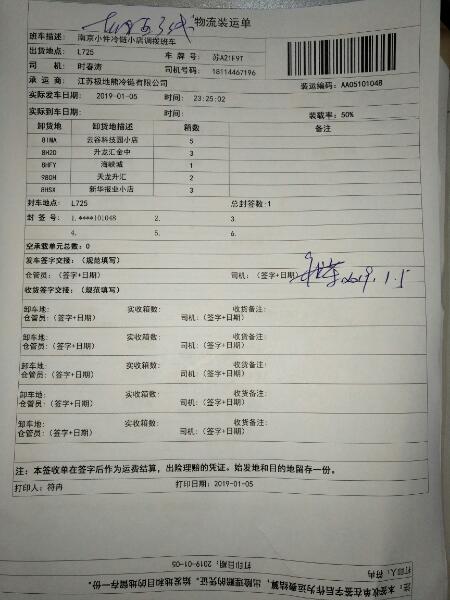 物流装运单
班车描述: 南京小件冷链小店调拨班车
出货地点: L725 车 牌 号: 苏A21F9T
司 机: 时春涛 司机号码: 18114467196
承 运 商: 江苏极地熊冷链有限公司 装运编码: AA05101048
实际发车日期: 2019-01-05 时间: 23:25:02
实际到车日期: 时间: 装载率: 50%
卸货地 卸货地描述 箱数 备注
8IMA 云谷科技园小店 5
8H2O 升龙汇金中 3
8HFY 海峡城 1
980H 天龙升汇 2
8HSX 新华报业小店 3
封车地点: L725 总封签数:1
封 签 号: 1.****101048 2. 3.
4. 5. 6.
空承载单元总数: 0
发车签字交接: (规范填写)
仓管员: (签字+日期) 司机: (签字+日期) 2019.1.5
收货签字交接: (规范填写)
卸车地: 实收箱数: 收货备注:
仓管员: (签字+日期) 司机: (签字+日期)
卸车地: 实收箱数: 收货备注:
仓管员: (签字+日期) 司机: (签字+日期)
卸车地: 实收箱数: 收货备注:
仓管员: (签字+日期) 司机: (签字+日期)
卸车地: 实收箱数: 收货备注:
仓管员: (签字+日期) 司机: (签字+日期)
卸车地: 实收箱数: 收货备注:
仓管员: (签字+日期) 司机: (签字+日期)
注: 本签收单在签字后作为运费结算, 出险理赔的凭证。始发地和目的地留存一份。
打印人: 符冉 打印日期: 2019-01-05
打印人: 符冉 打印日期: 2019-01-05
注: 本签收单在签字后作为运费结算, 出险理赔的凭证。始发地和目的地留存一份。